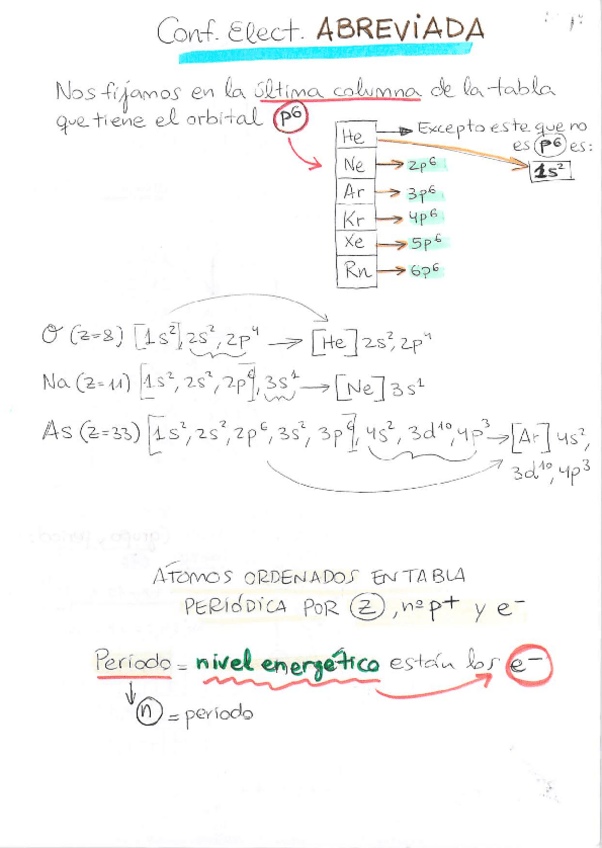 Conf. Elect. ABREVIADA
Nos fijamos en la última columna de la tabla
que tiene el orbital p⁶
He → Excepto este que no
es p⁶ es:
1s²
Ne → 2p⁶
Ar → 3p⁶
Kr → 4p⁶
Xe → 5p⁶
Rn → 6p⁶
O (z=8) [1s²], 2s², 2p⁴ → [He] 2s², 2p⁴
Na (z=11) [1s², 2s², 2p⁶], 3s¹ → [Ne] 3s¹
As (z=33) [1s², 2s², 2p⁶, 3s², 3p⁶], 4s², 3d¹⁰, 4p³ → [Ar] 4s²,
3d¹⁰, 4p³
ÁTOMOS ORDENADOS EN TABLA
PERIÓDICA POR Z, nº p+ y e-
Período = nivel energético están los e-
↓
n = período